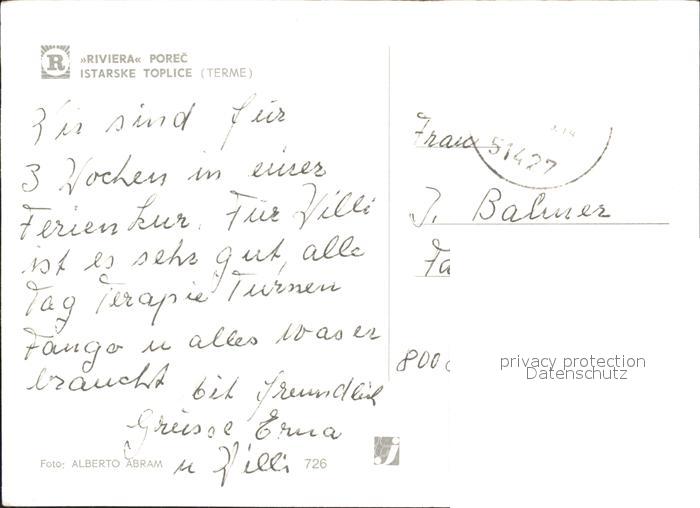 »RIVIERA« POREČ
ISTARSKE TOPLICE (TERME)
Wir sind für
3 Wochen in einer
Ferienkur. Für Willi
ist es sehr gut, alle
Tag Terapie Turnen
Fango u alles was er
braucht bit freundlich
Grüsse Erna
u Willi
Foto: ALBERTO ABRAM 726
Frau
51427
J. Balmer
Fa
800
privacy protection
Datenschutz